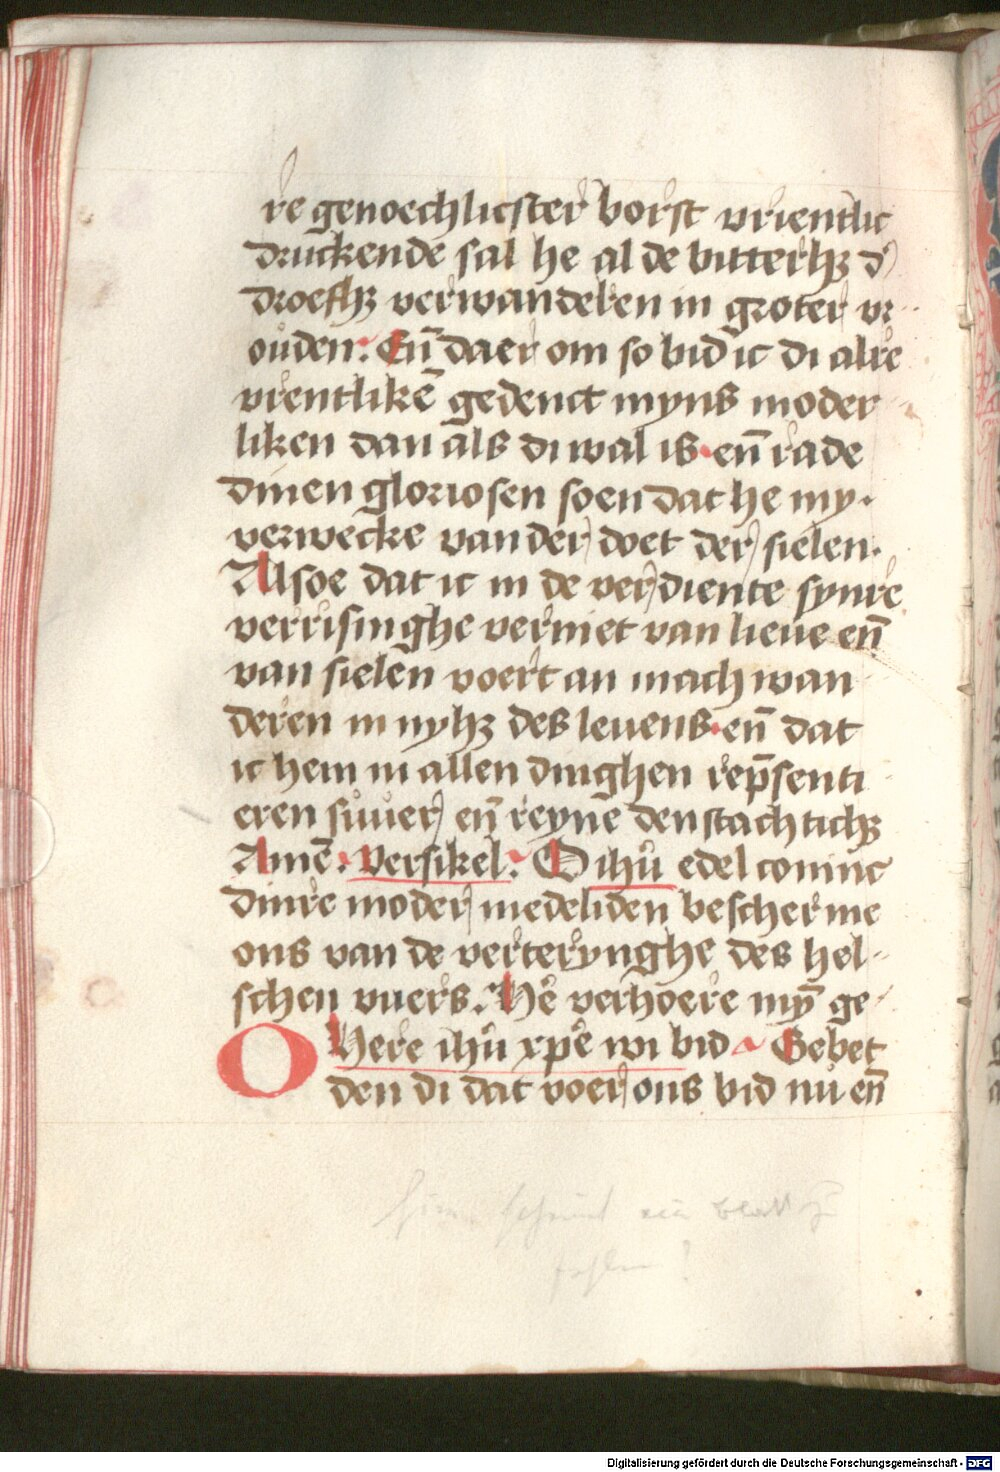 re genoechlicster borst vrientlic
druckende sal he al de bitterhꝫ d'
droefhꝫ verwandelen in groter vr
ouden. Eñ daer om so bid ic di alre
vrentlikē gedenct myns moder
liken dan als di wal is. eñ rade
dinen gloriosen soen dat he my.
verwecke van der doet der sielen.
Alsoe dat ic in de verdiente synre
verrisinghe verniet van lieue eñ
van sielen voert an mach wan
deren in nyhꝫ des leuens. eñ dat
ic hem in allen dinghen rep̄senti
eren suuer eñ reyne denstachtichꝫ
Amē. Versikel. O ihū edel coninc
dinre moder medeliden bescherme
ons van de verterynghe des hel-
schen vuers. He verhoere mȳ ge
Here ihū xp̄e wi bid Gebet
O den di dat voer ons bid nu eñ
hier scheint ein Blatt zu
fehlen?
Digitalisierung gefördert durch die Deutsche Forschungsgemeinschaft - DFG